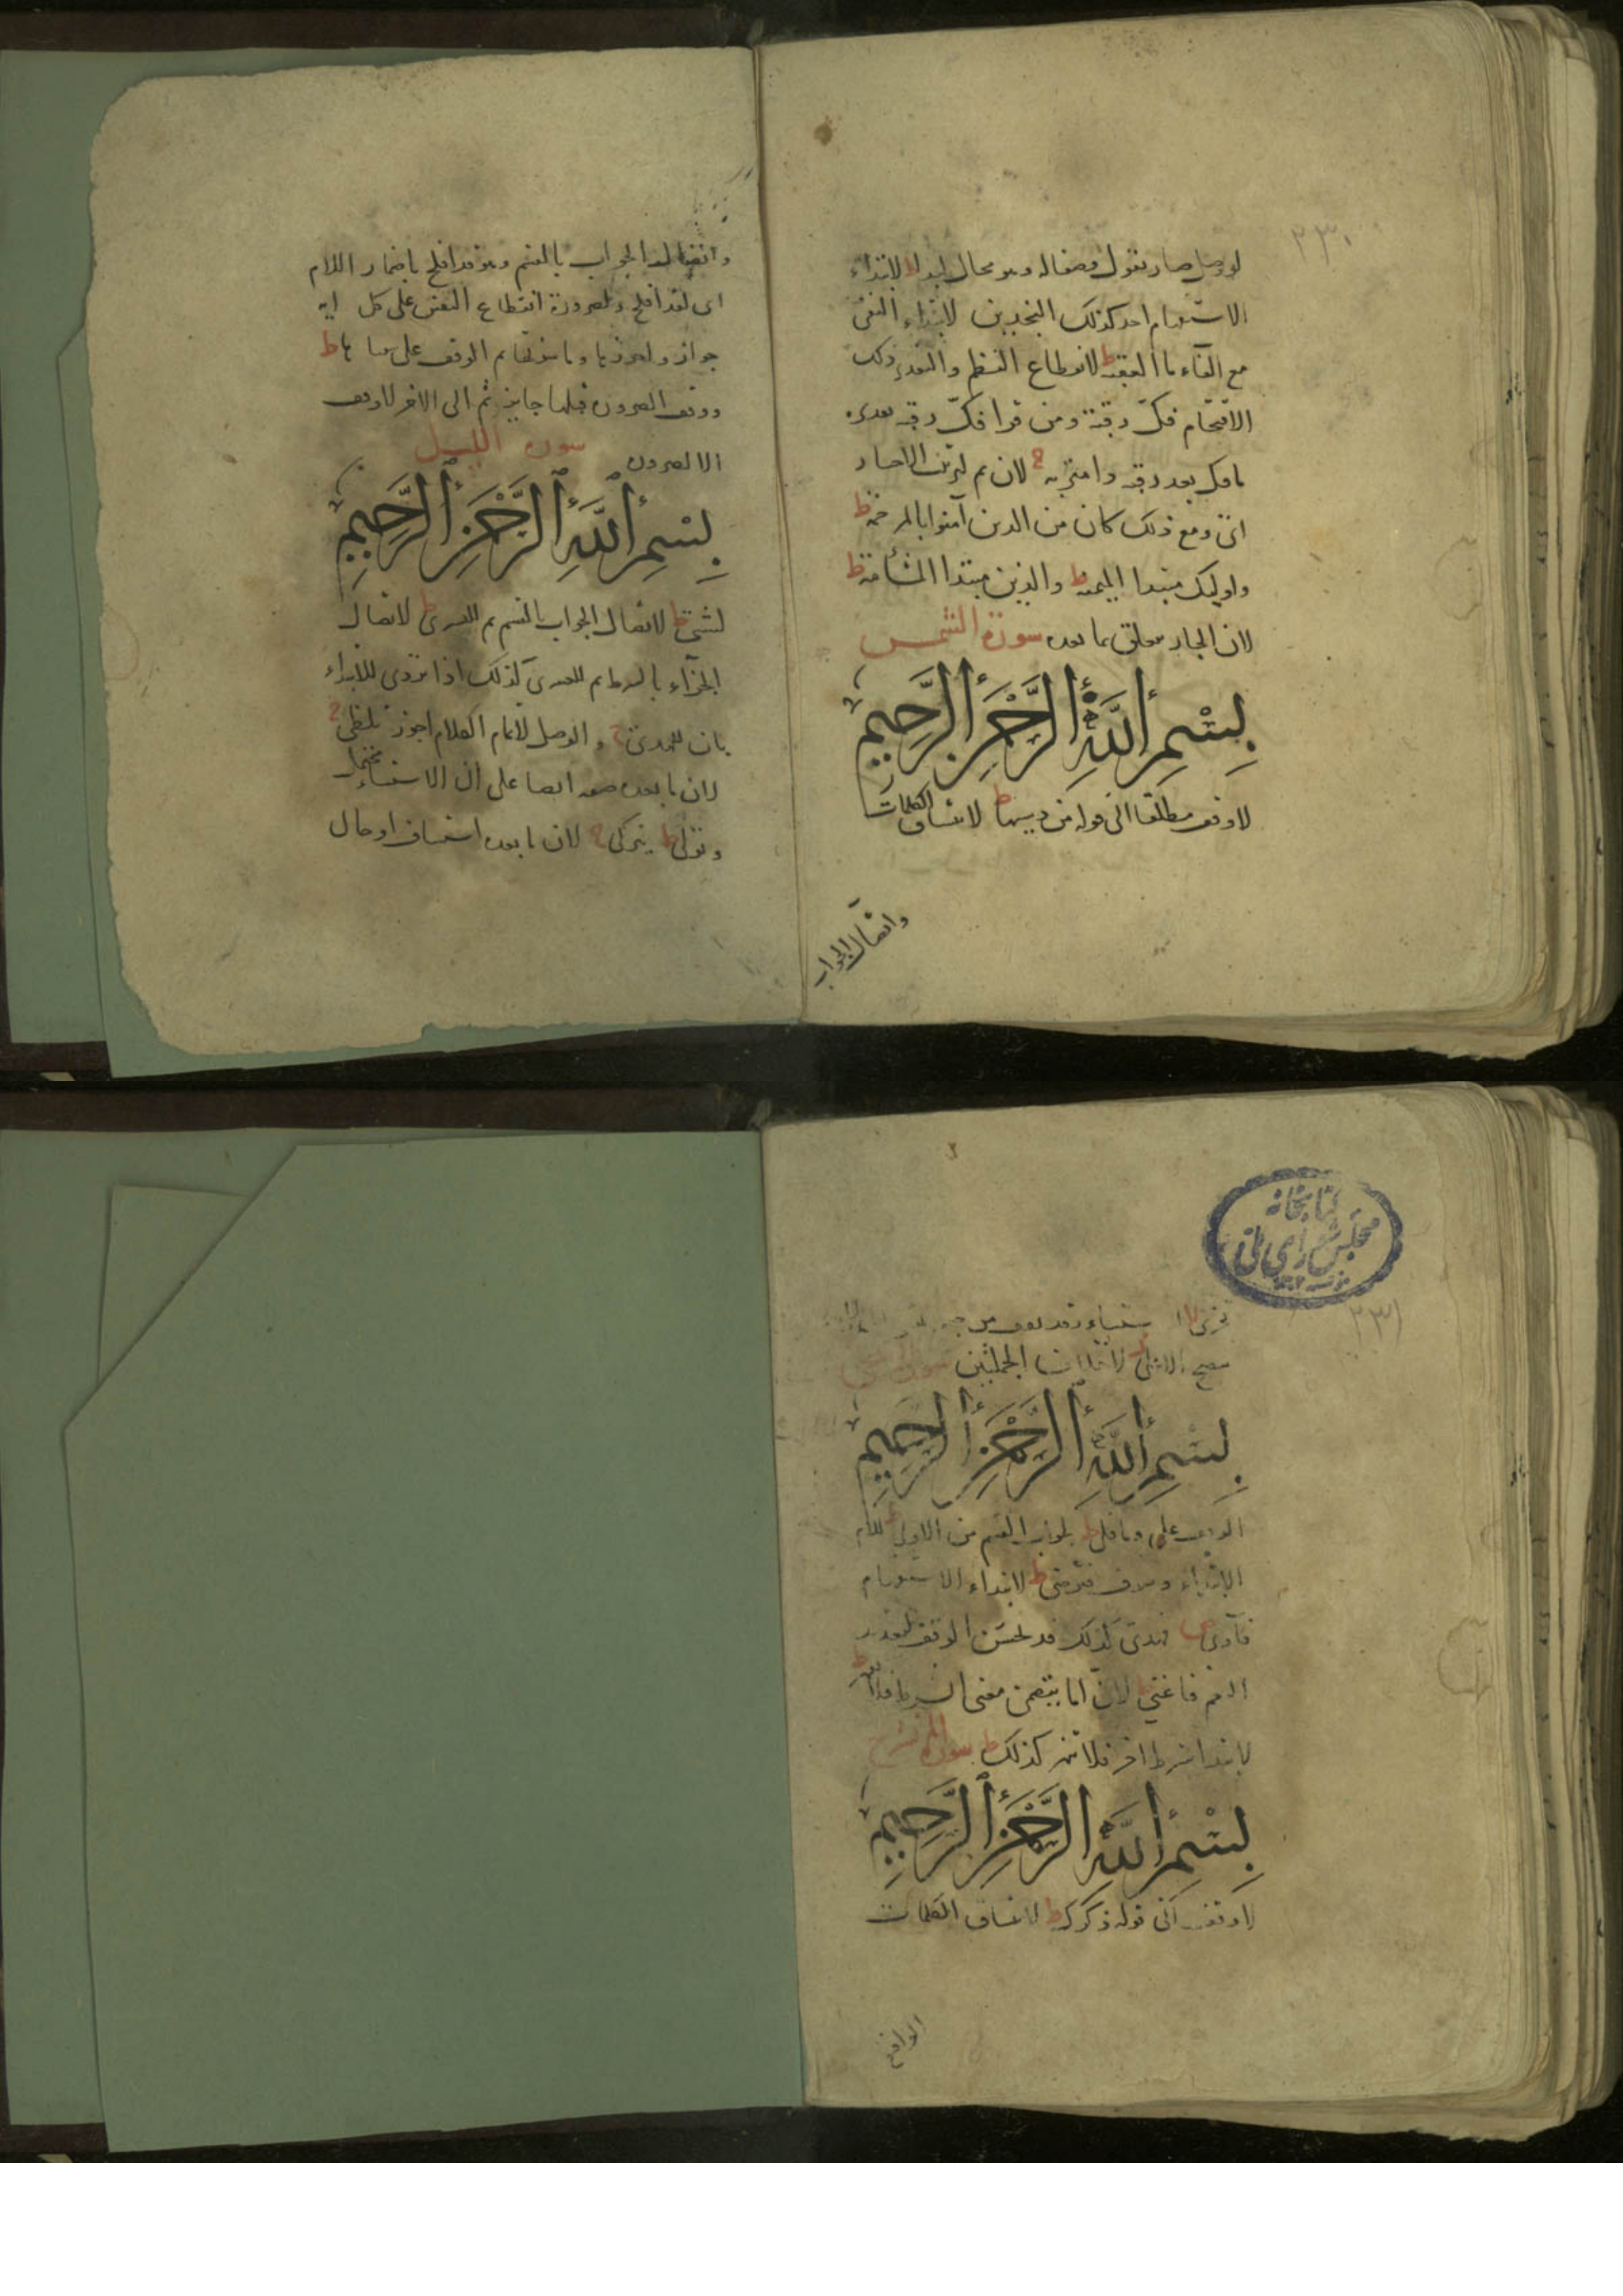 ٢٣٠
لو وصل صار يقول وصفا له وهو محال لبدا ط لابتداء
الاستفهام احد كذلك النجدين لابتداء النفي
مع الفاء ما العقبة ط لانقطاع النظم والتقدير ذلك
الاقتحام فك رقبة ومن قرا فك رقبة
مافك بعد رقبة وا متربة لان ثم لترتيب الاخبار
اى ومع ذلك كان من الذين آمنوا بالمرحمة ط
واوليك مبتدا الميمنة ط والذين مبتدا المشأمة ط
لان الجار معلق بما بعده سورة الشمس
بِسْمِ اللَّهِ الرَّحْمَنِ الرَّحِيمِ
لا وقف مطلقا الى قوله من دسيها ط لاتساق الكلمات
واتصال الجواب
واتصال الجواب بالقسم وهو قد افلح باضمار اللام
اى لقد افلح ولضرورة انقطاع النفس على كل اية
جواز ولحوزها وما سوىها ثم الوقف على ها ط
ووقف الضرورة فيلها جايز ثم الى الاخر لا وقف
الا لضرورة سورة الليل
بِسْمِ اللَّهِ الرَّحْمَنِ الرَّحِيمِ
لشتى ط لاتصال الجواب بالقسم ثم للعسرى ط لاتصال
الجزاء بالشرط ثم للعسرى كذلك اذا تردى للابتداء
بان للهدى والوصل لاتمام الكلام اجوز تلظى
لان ما بعده صفة ايضا على ان الاستثناء يحتمل
وتولى ط يتزكى لان ما بعده استيناف او حال
كتابخانه
مجلس شوراى ملى
٢٣١
تجزى لا
الاعلى لاختلاف الجملتين سورة الضحى
بِسْمِ اللَّهِ الرَّحْمَنِ الرَّحِيمِ
الوقف على وما قلى ط لجواب القسم من الاولى للام
الابتداء وسوف فترضى ط لابتداء الاستفهام
فآوى فهدى كذلك قد يحسن الوقف لتعديد
النعم فاغنى لان اما يتضمن معنى الشرط فلا تقهر ط
لابتدا شرط اخر فلا تنهر كذلك ط سورة الم نشرح
بِسْمِ اللَّهِ الرَّحْمَنِ الرَّحِيمِ
لا وقف الى قوله ذكرك ط لاتساق الكلمات
الواقع